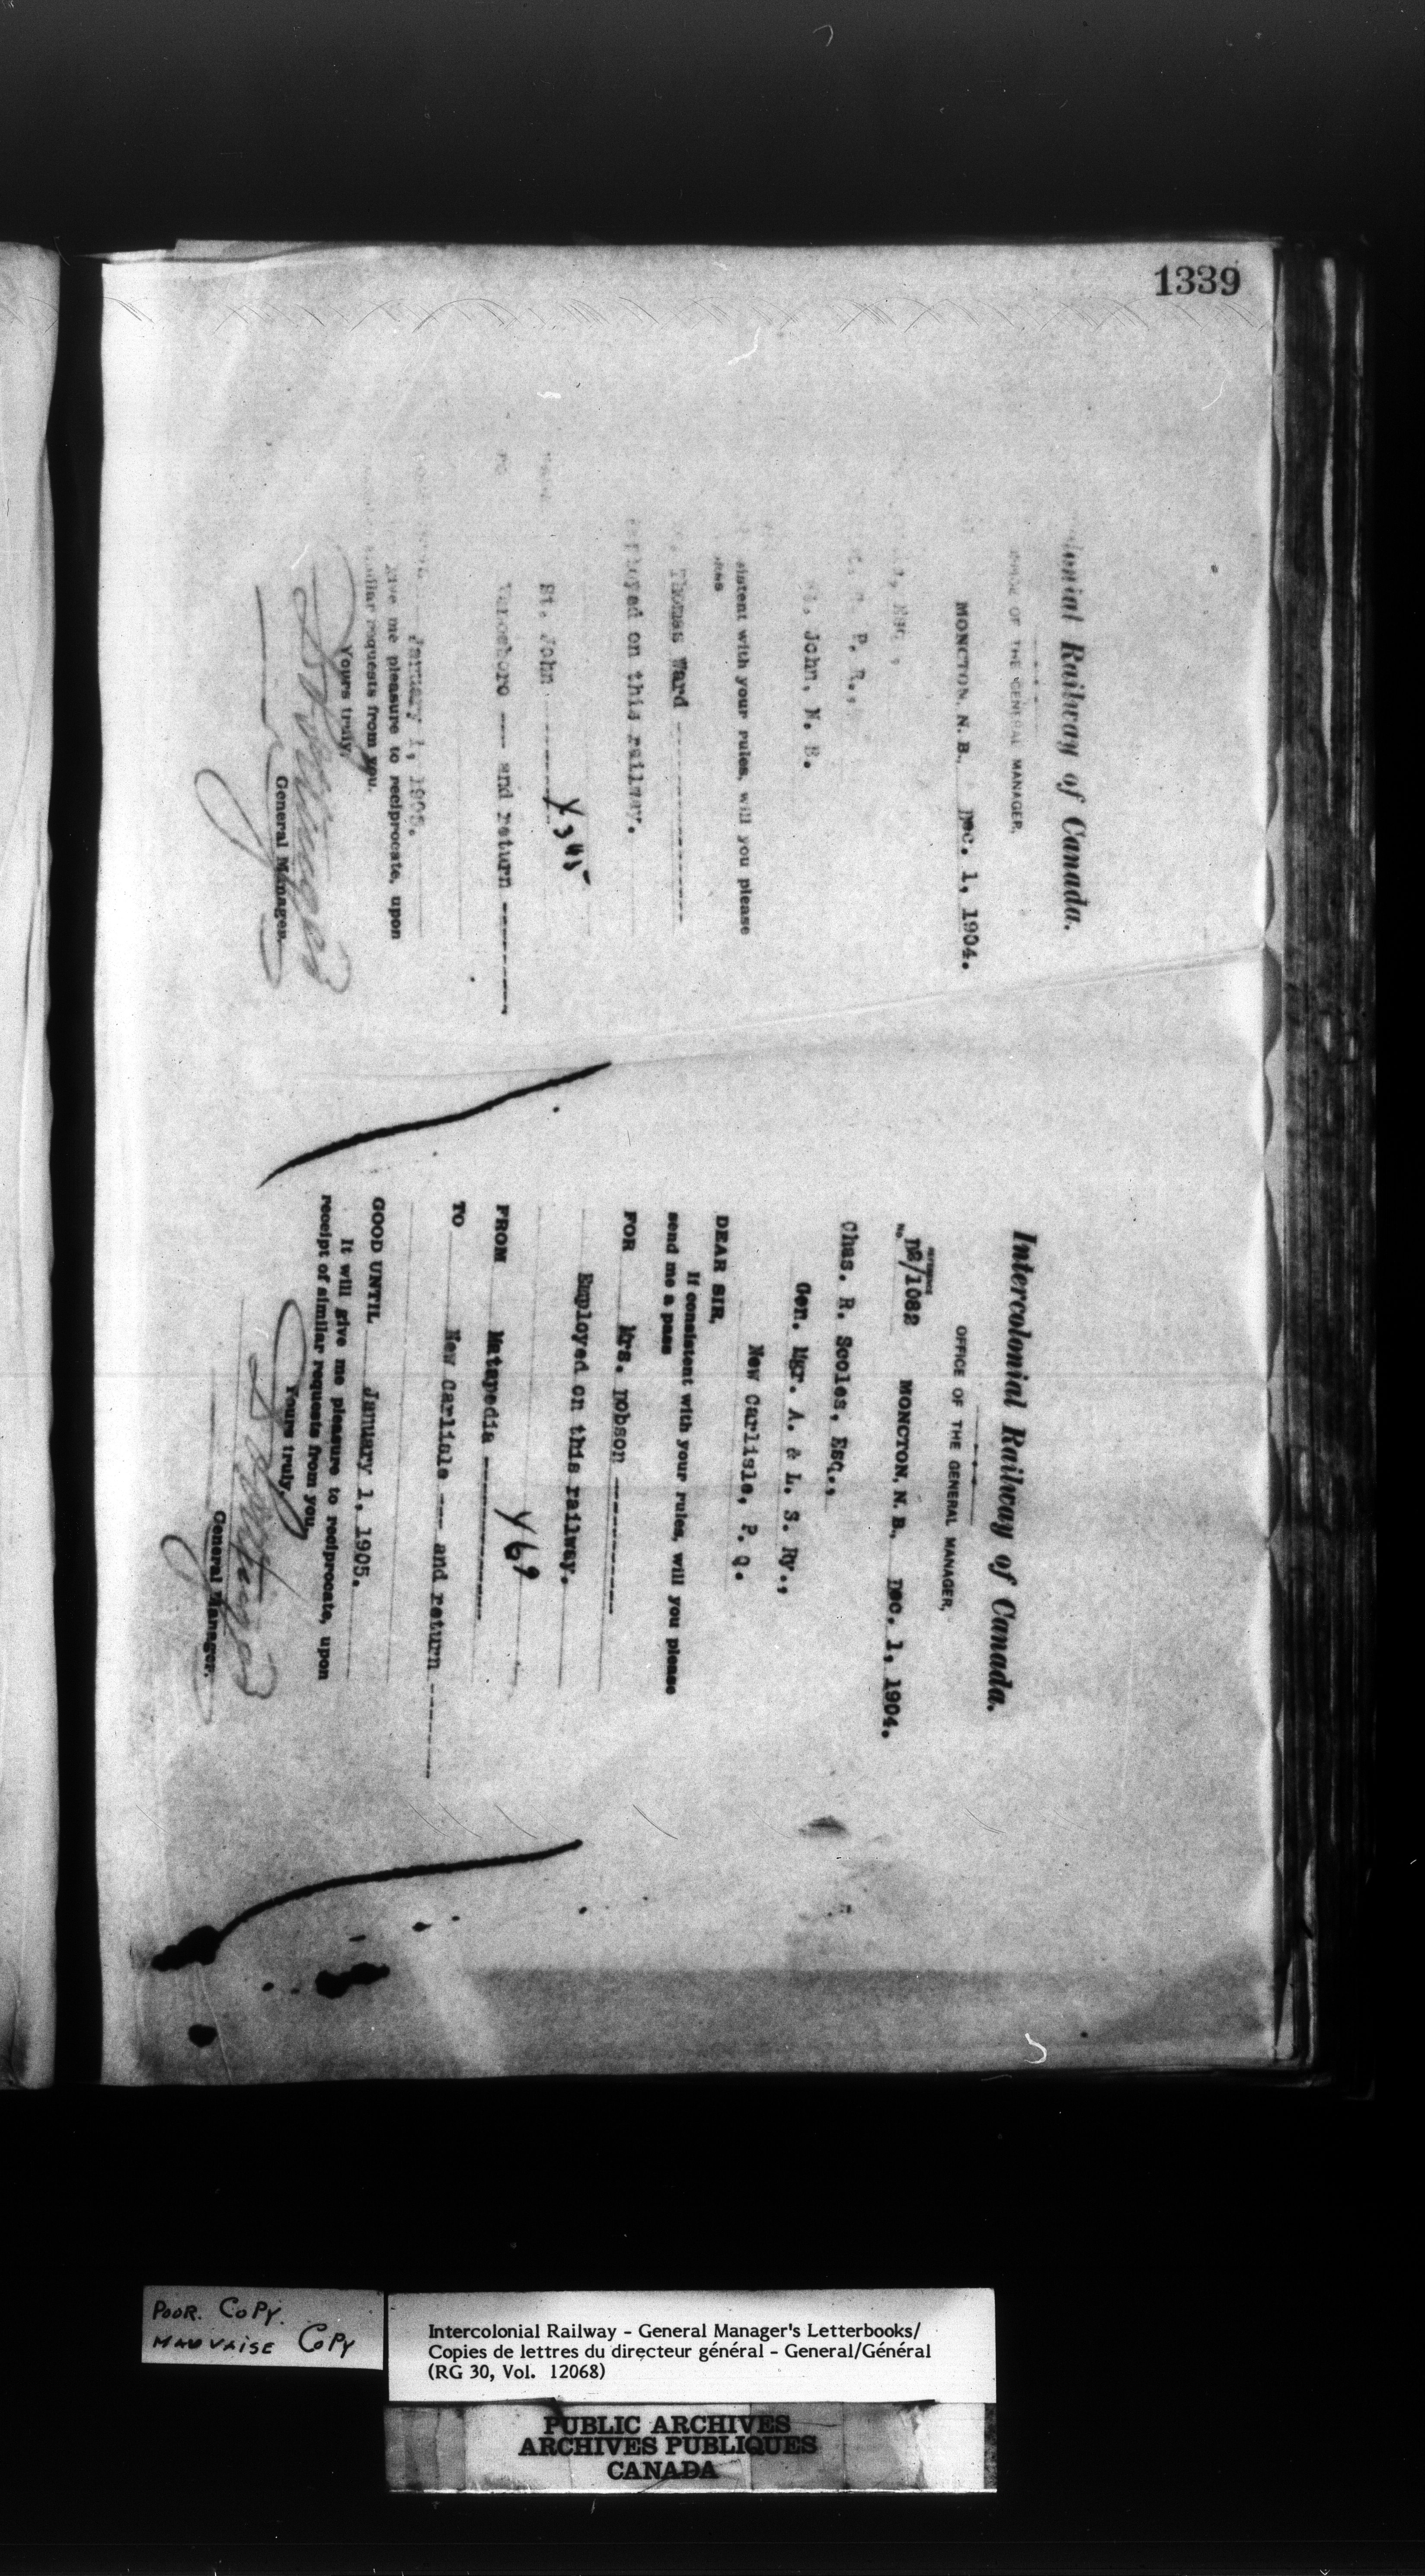 1339
Railway of Canada.
OFFICE OF THE GENERAL MANAGER,
MONCTON, N. B., Dec. 1, 1904.
P. R.,
St. John, N. B.
sistent with your rules, will you please
Thomas Ward
employed on this railway.
St. John
Y345
Vanceboro --- and return
January 1, 1905.
give me pleasure to reciprocate, upon
similar requests from you.
Yours truly,
General Manager.
Intercolonial Railway of Canada.
OFFICE OF THE GENERAL MANAGER,
REFERENCE
No. D2/1082 MONCTON, N. B., Dec. 1, 1904.
Chas. R. Scoles, Esq.,
Gen. Mgr. A. & L. S. Ry.,
New Carlisle, P. Q.
DEAR SIR,
If consistent with your rules, will you please
send me a pass
FOR Mrs. Dobson
Employed on this railway.
Y69
FROM Matapedia
TO New Carlisle --- and return
GOOD UNTIL January 1, 1905.
It will give me pleasure to reciprocate, upon
receipt of similar requests from you.
Yours truly,
General Manager.
POOR. COPY.
MAUVAISE COPY
Intercolonial Railway - General Manager's Letterbooks/
Copies de lettres du directeur général - General/Général
(RG 30, Vol. 12068)
PUBLIC ARCHIVES
ARCHIVES PUBLIQUES
CANADA